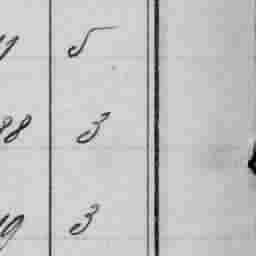 5
88 3
19 3